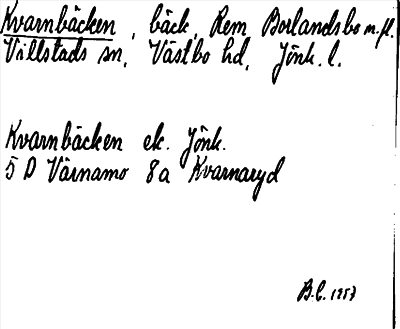 Kvarnbäcken, bäck, Rem Borlandsbo m.fl.
Villstads sn, Västbo hd, Jönk. l.
Kvarnbäcken ek. Jönk.
5 D Värnamo 8a Kvarnaryd
B.C. 1957